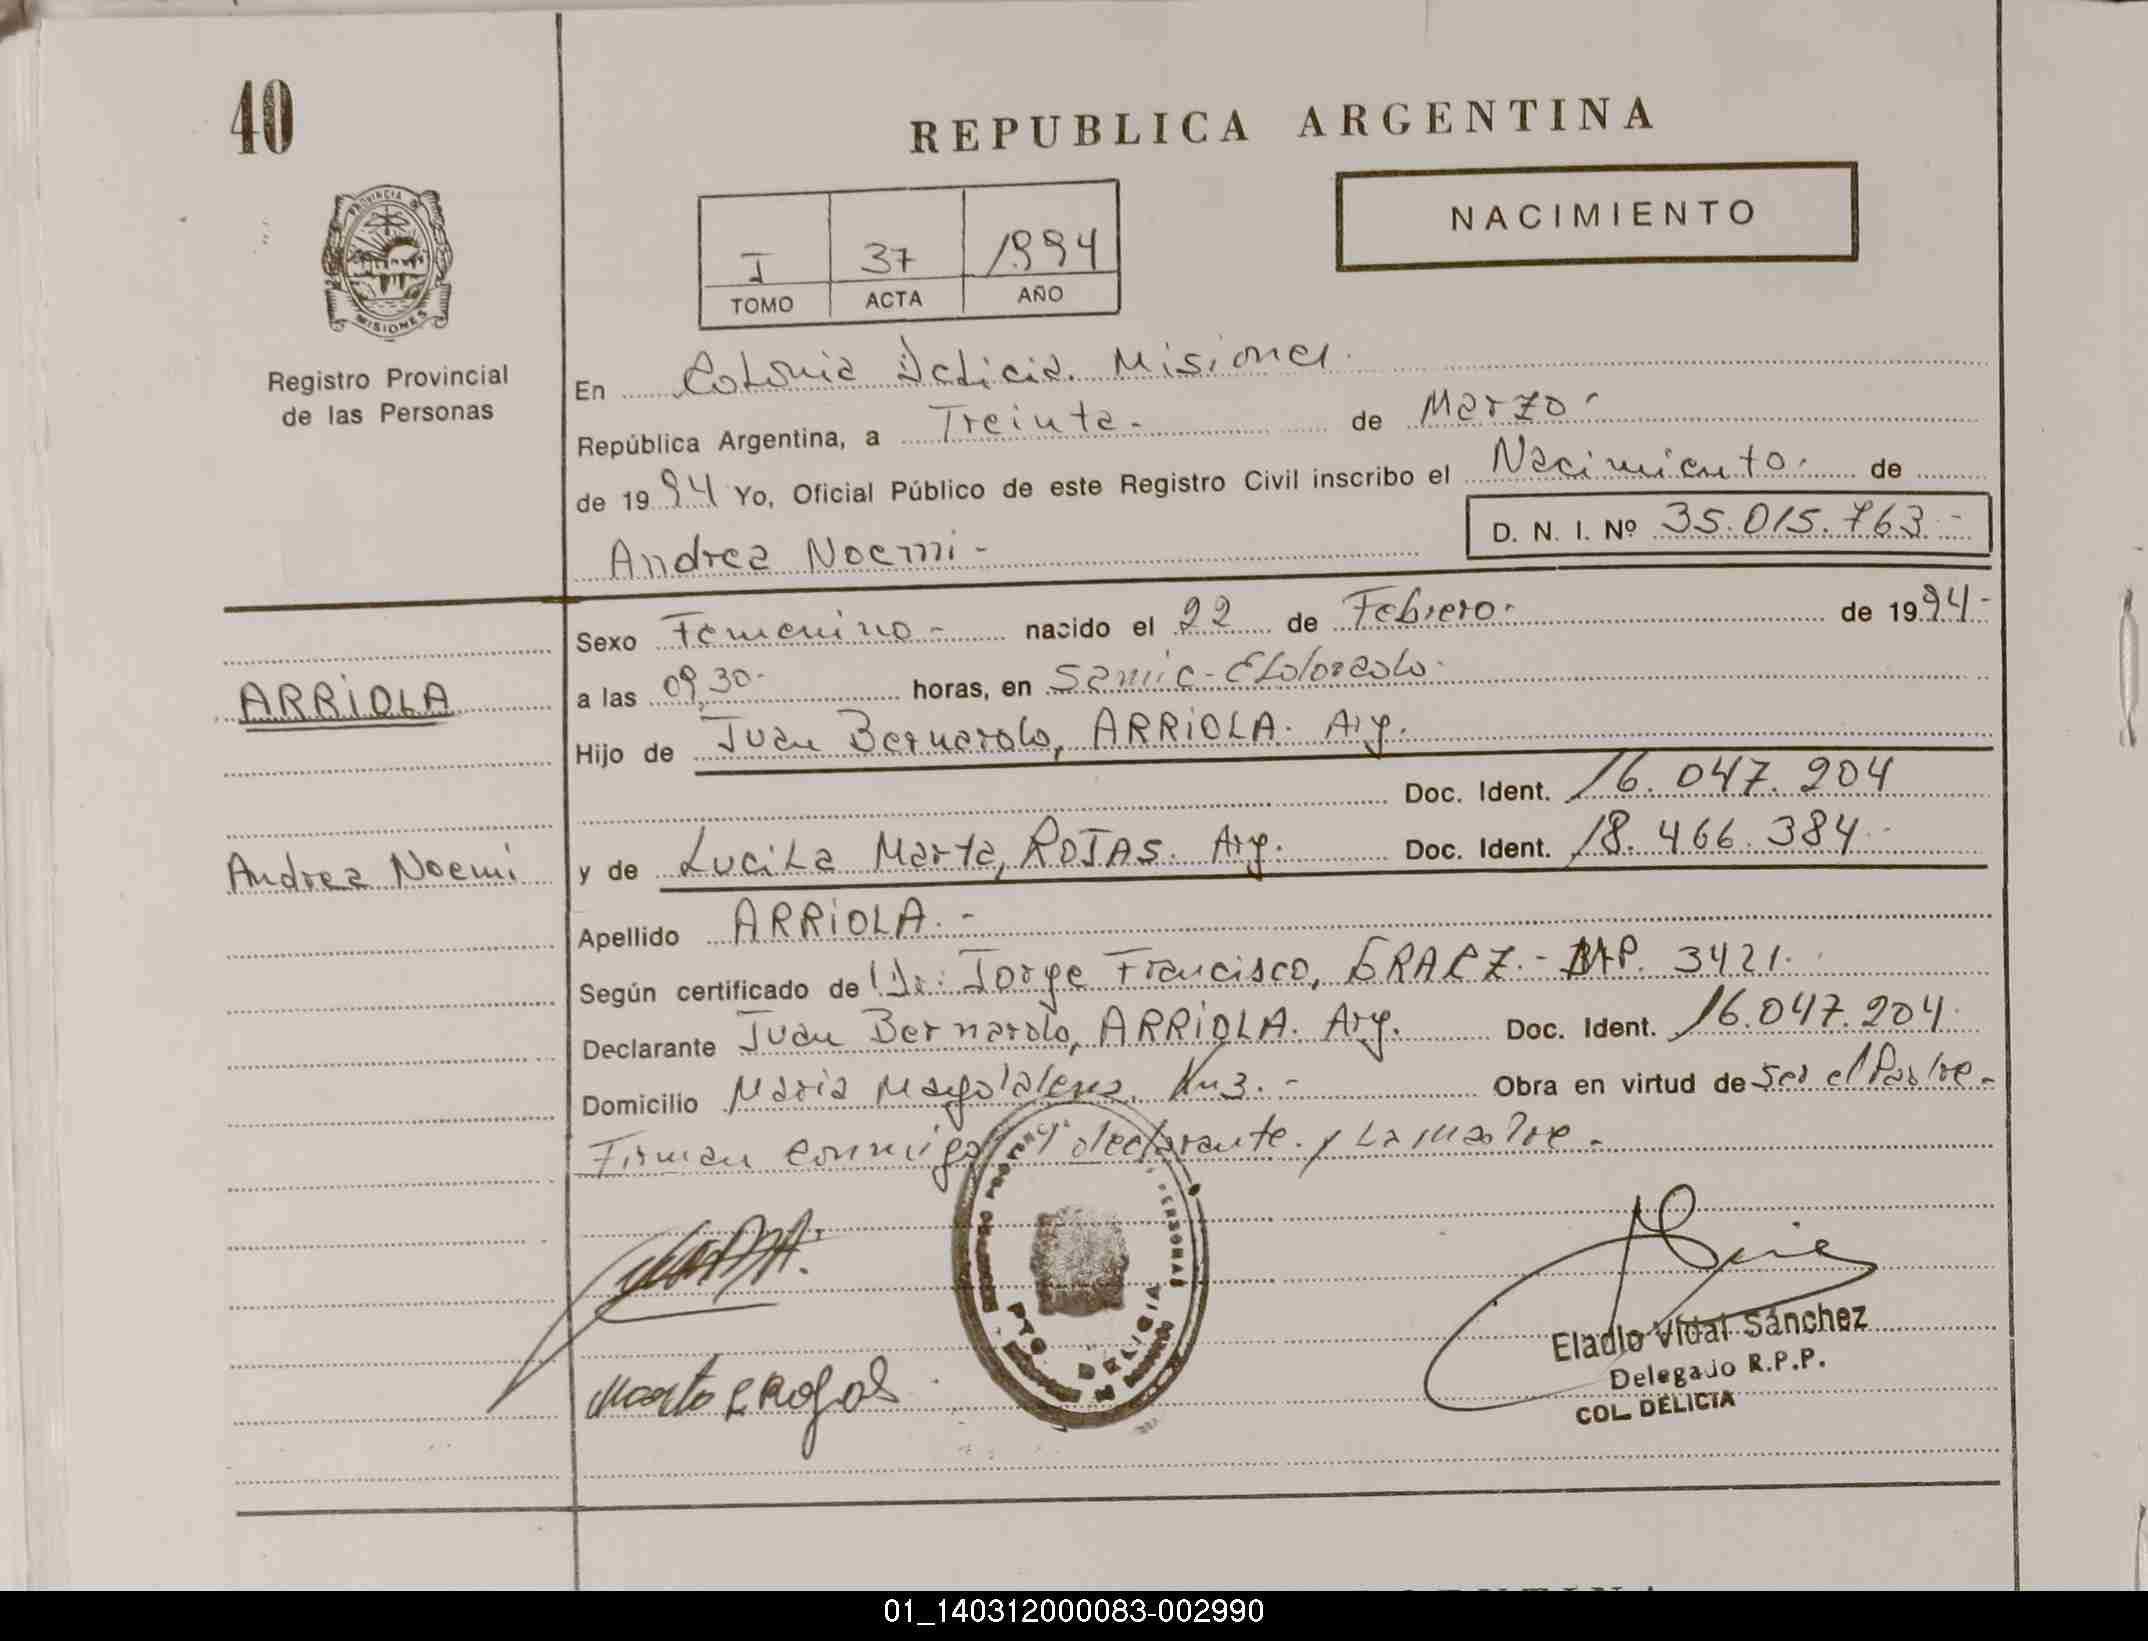 40
REPUBLICA ARGENTINA
NACIMIENTO
I 37 1994
TOMO ACTA AÑO
PROVINCIA DE
MISIONES
Registro Provincial
de las Personas
En Colonia Delicia. Misiones.
República Argentina, a Treinta.- de Marzo.-
de 1994 Yo, Oficial Público de este Registro Civil inscribo el Nacimiento. de
Andrea Noemi- D. N. I. Nº 35.015.763.-
Sexo Femenino- nacido el 22 de Febrero. de 1994-
ARRiOLA
a las 09,30- horas, en Samic-Eldorado.
Hijo de Juan Bernardo, ARRiOLA. Arg.
Doc. Ident. 16.047.204
Andrea Noemi
y de Lucila Marta, ROJAS. Arg. Doc. Ident. 18.466.384.
Apellido ARRiOLA.-
Según certificado de Dr. Jorge Francisco, M.P. 3421.
Declarante Juan Bernardo, ARRiOLA. Arg. Doc. Ident. 16.047.204.
Domicilio Maria Magdalena. Km3.- Obra en virtud de Ser el Padre.-
Firman conmigo el declarante. y La madre.-
PTO. DELICIA
Marta L Rojas
Eladio Vidal Sánchez
Delegado R.P.P.
COL. DELICIA
01_140312000083-002990